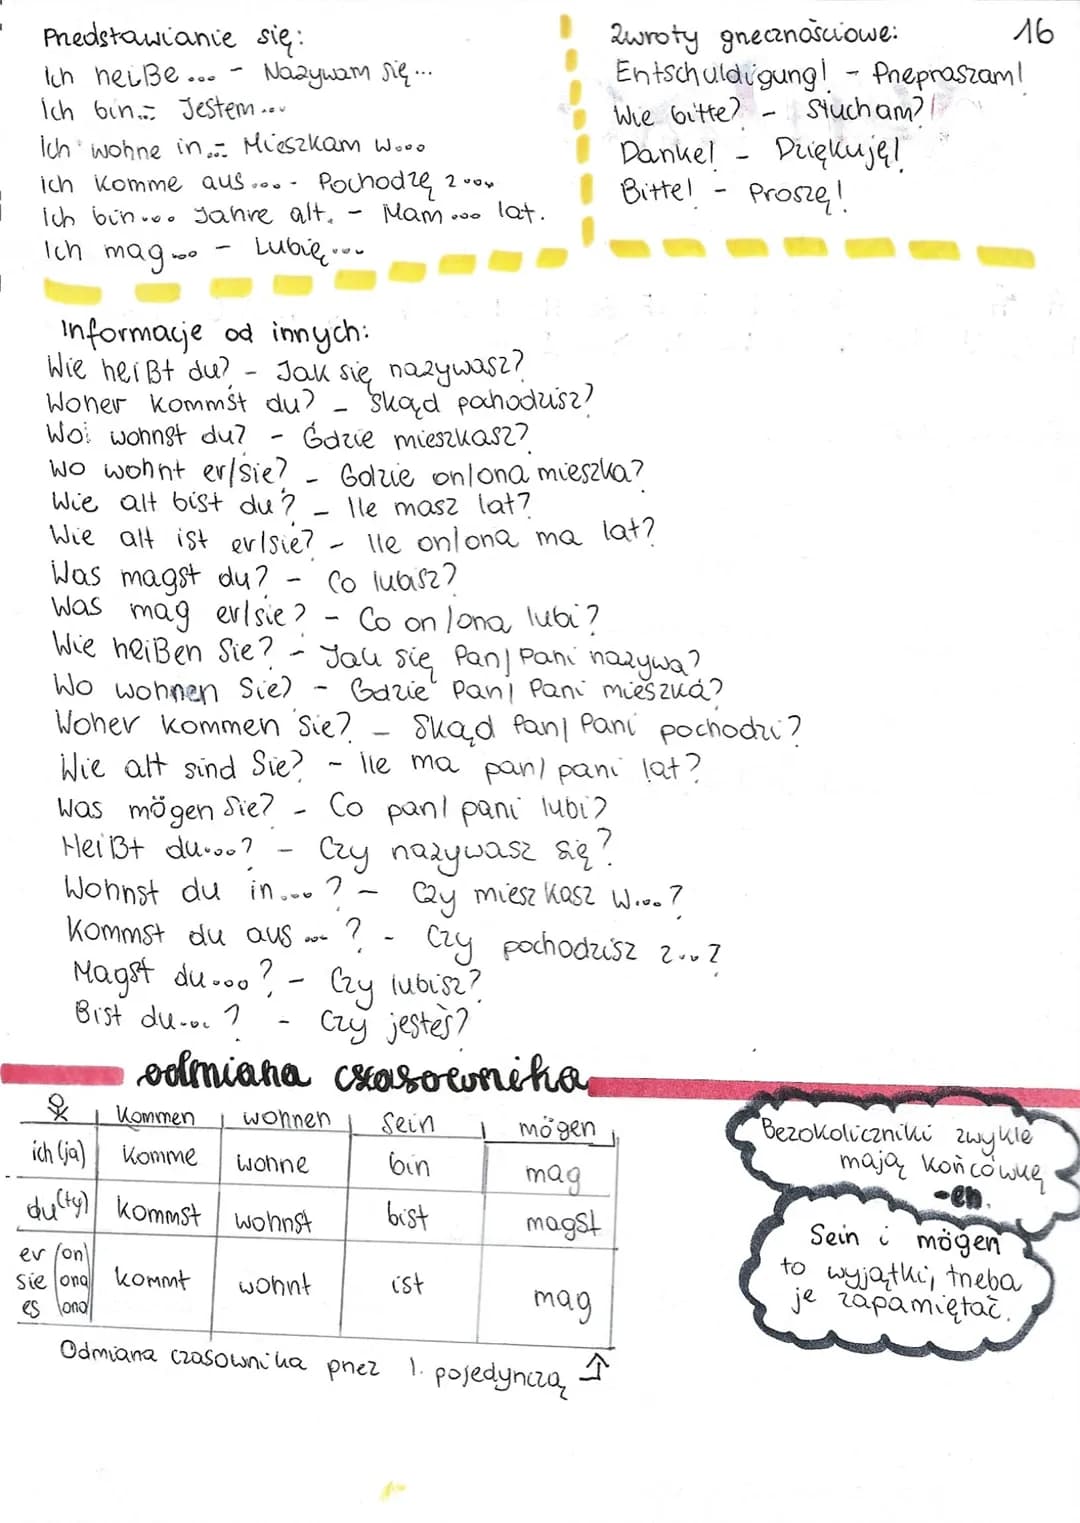 Przedstawianie się:
Ich heiße... - Nazywam się...
Ich bin... - Jestem...
Ich wohne in... - Mieszkam w....
Ich komme aus.... - Pochodzę z....
Ich bin.... Jahre alt. - Mam.... lat.
Ich mag.... - Lubię....
Zwroty grzecznościowe:
16
Entschuldigung! - Przepraszam!
Wie bitte? - Słucham?
Danke! - Dziękuję!
Bitte! - Proszę!
Informacje od innych:
Wie heißt du? - Jak się nazywasz?
Woher kommst du? - Skąd pochodzisz?
Wo wohnst du? - Gdzie mieszkasz?
Wo wohnt er/sie? - Gdzie on/ona mieszka?
Wie alt bist du? - Ile masz lat?
Wie alt ist er/sie? - Ile on/ona ma lat?
Was magst du? - Co lubisz?
Was mag er/sie? - Co on/ona lubi?
Wie heißen Sie? - Jak się Pan/Pani nazywa?
Wo wohnen Sie? - Gdzie Pan/Pani mieszka?
Woher kommen Sie? - Skąd Pan/Pani pochodzi?
Wie alt sind Sie? - Ile ma pan/pani lat?
Was mögen Sie? - Co pan/pani lubi?
Heißt du....? - Czy nazywasz się?
Wohnst du in....? - Czy mieszkasz w....?
Kommst du aus ....? - Czy pochodzisz z...?
Magst du....? - Czy lubisz?
Bist du....? - Czy jesteś?
odmiana czasownika
kommen wohnen sein mögen
ich (ja) komme wohne bin mag
du (ty) kommst wohnst bist magst
er (on)
sie (ona) kommt wohnt ist mag
es (ono)
Odmiana czasownika przez l. pojedynczą
Bezokoliczniki zwykle
mają końcówkę
-en.
Sein i mögen
to wyjątki, trzeba
je zapamiętać.